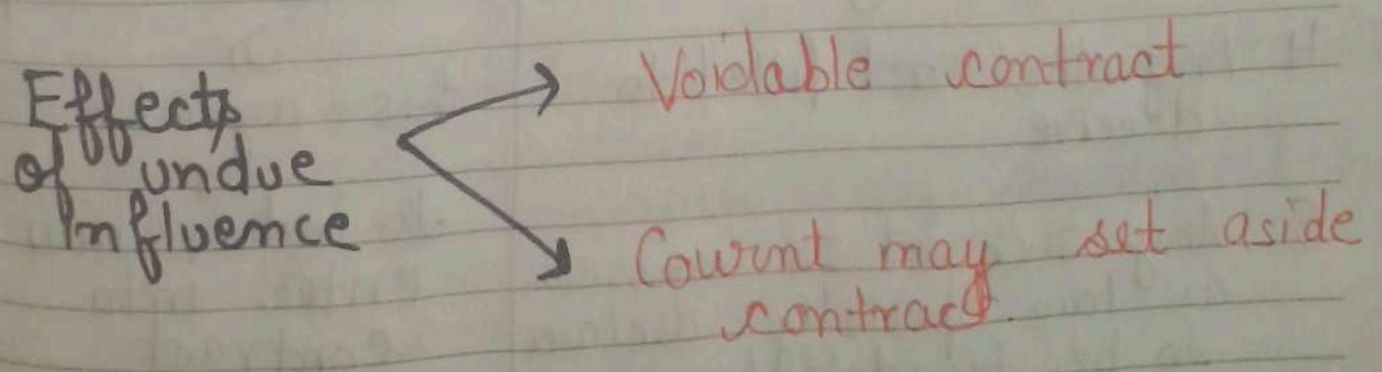 Effects
of undue
Influence
Voidable contract
Cournt may set aside
contract.